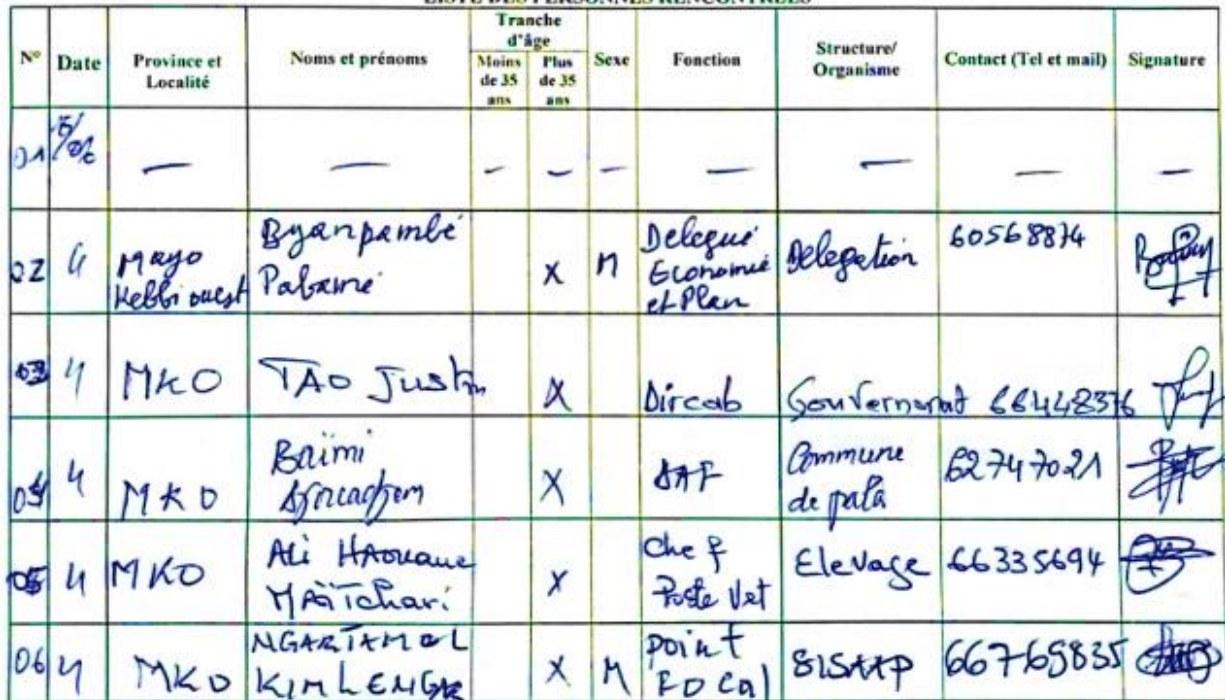 LISTE DES PERSONNES RENCONTREES
N° Date Province et Localité Noms et prénoms Tranche d'âge Moins de 35 ans Plus de 35 ans Sexe Fonction Structure/ Organisme Contact (Tel et mail) Signature
01 — — - - - — — — —
02 Mayo Kebbi ouest Byanpambé Pabamé X M Delegué Economie et Plan Delegation 60568874
03 MKO TAO Justin X Dircab Gouvernorat 66448376
04 MKO Baïmi X Commune de pala 62747021
05 MKO Ali HAouaue MAÏTchari X Chef Poste Vet Elevage 66335694
06 MKO NGARTAMOL KIMLENGAR X M point FOCal SISAAP 66769835